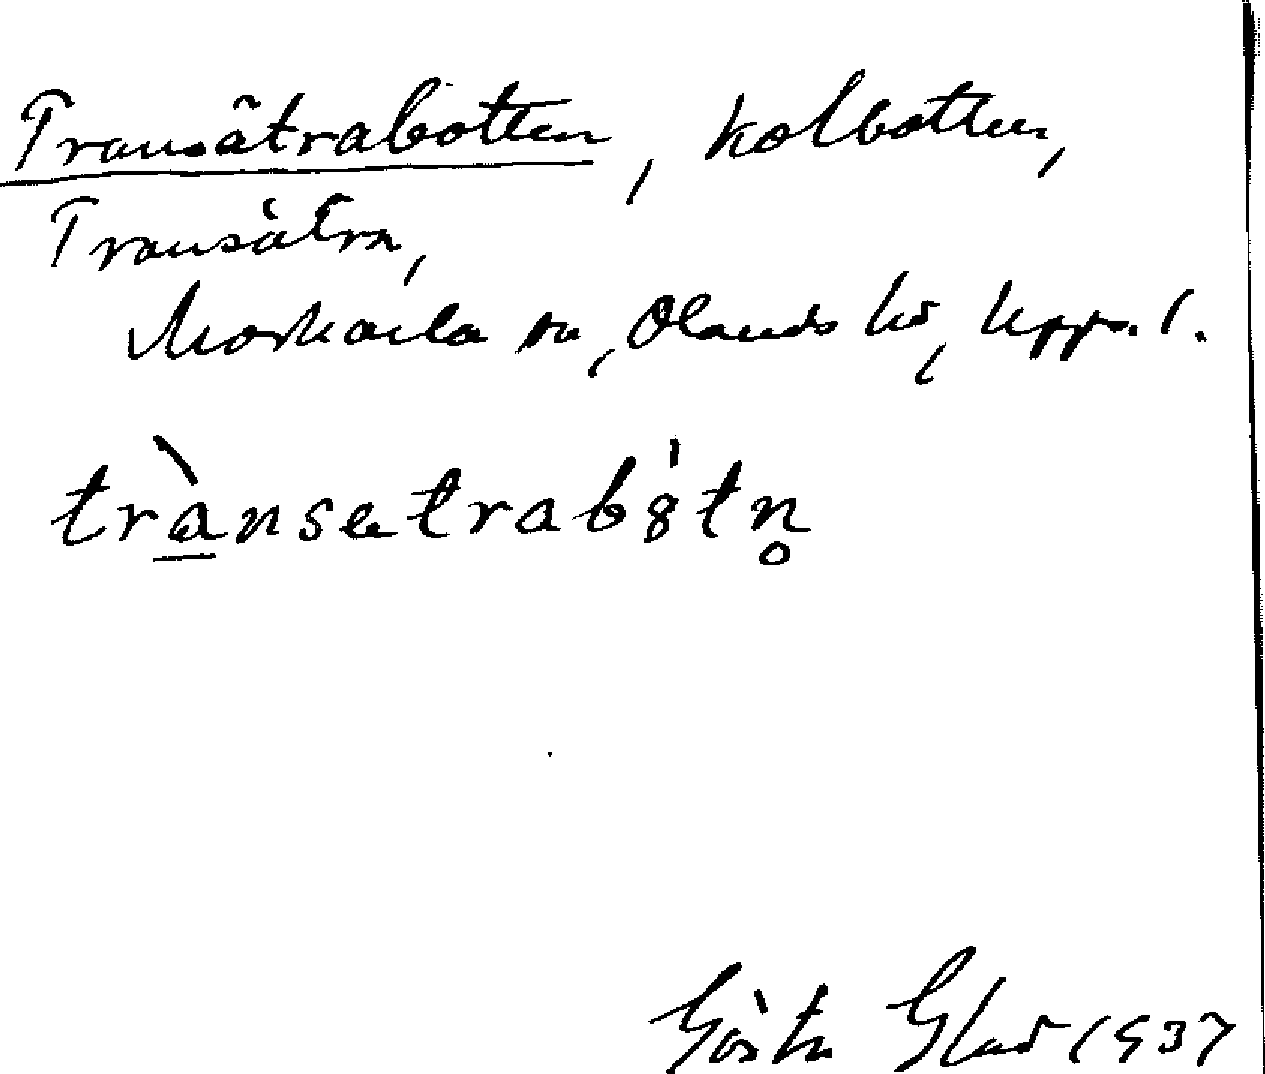 Transätrabotten, kolbotten,
Transätra,
Morkarla sn, Olands hd, Upps. l.
trànsetrabȯtn̥
Gösta Glad 1937